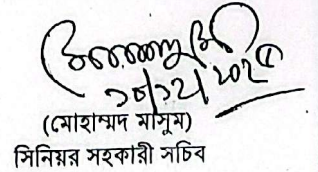 ১০/১২/২০২৫
(মোহাম্মদ মাসুম)
সিনিয়র সহকারী সচিব